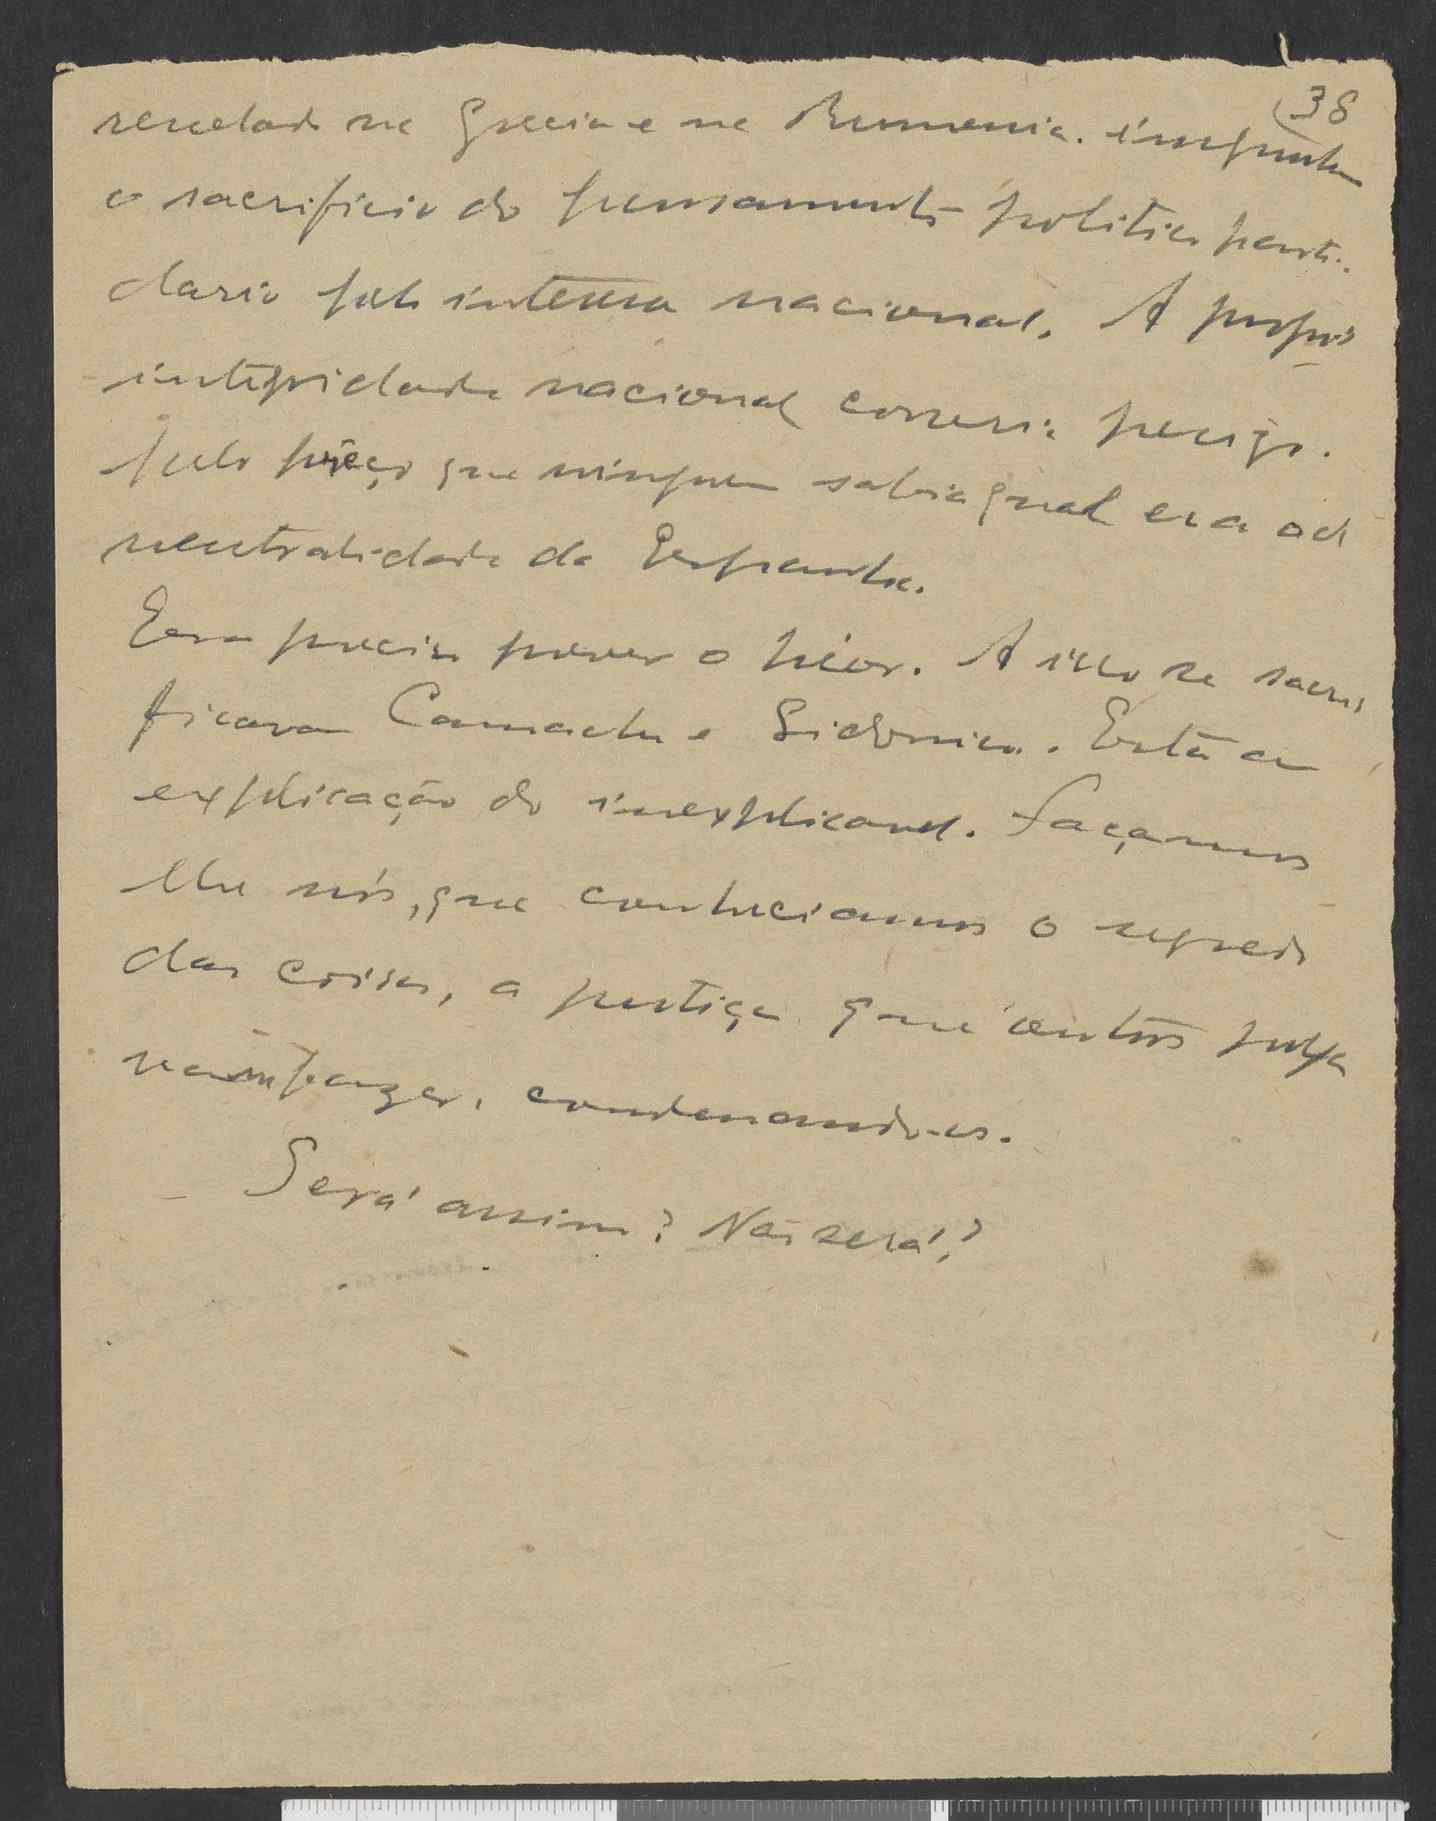 38
revelado na Grecia e na Rumania. impunha
o sacrificio do pensamento politico parti-
dario pelo interesse nacional. A propria
integridade nacional correria perigo.
pelo preço que ninguem sabia qual era o da
neutralidade da Espanha.
Era preciso prever o peior. A isso se sacri
ficavam Camacho e Sidonio. Está a
explicação do inexplicavel. Façamos
lhe nós, que conheciamos o segredo
das coisas, a justiça que outros julga
vam fazer, condenando-os.
Será assim? Não será?